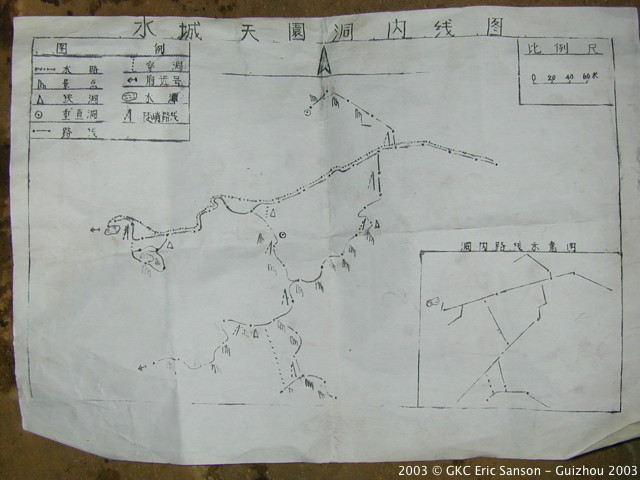 水城 天園洞内线图
图 例
水路
景点
垂直洞
路线
水潭
陡峭路线
比例尺
0 20 40 60米
洞内路线示意图
2003 © GKC Eric Sanson - Guizhou 2003